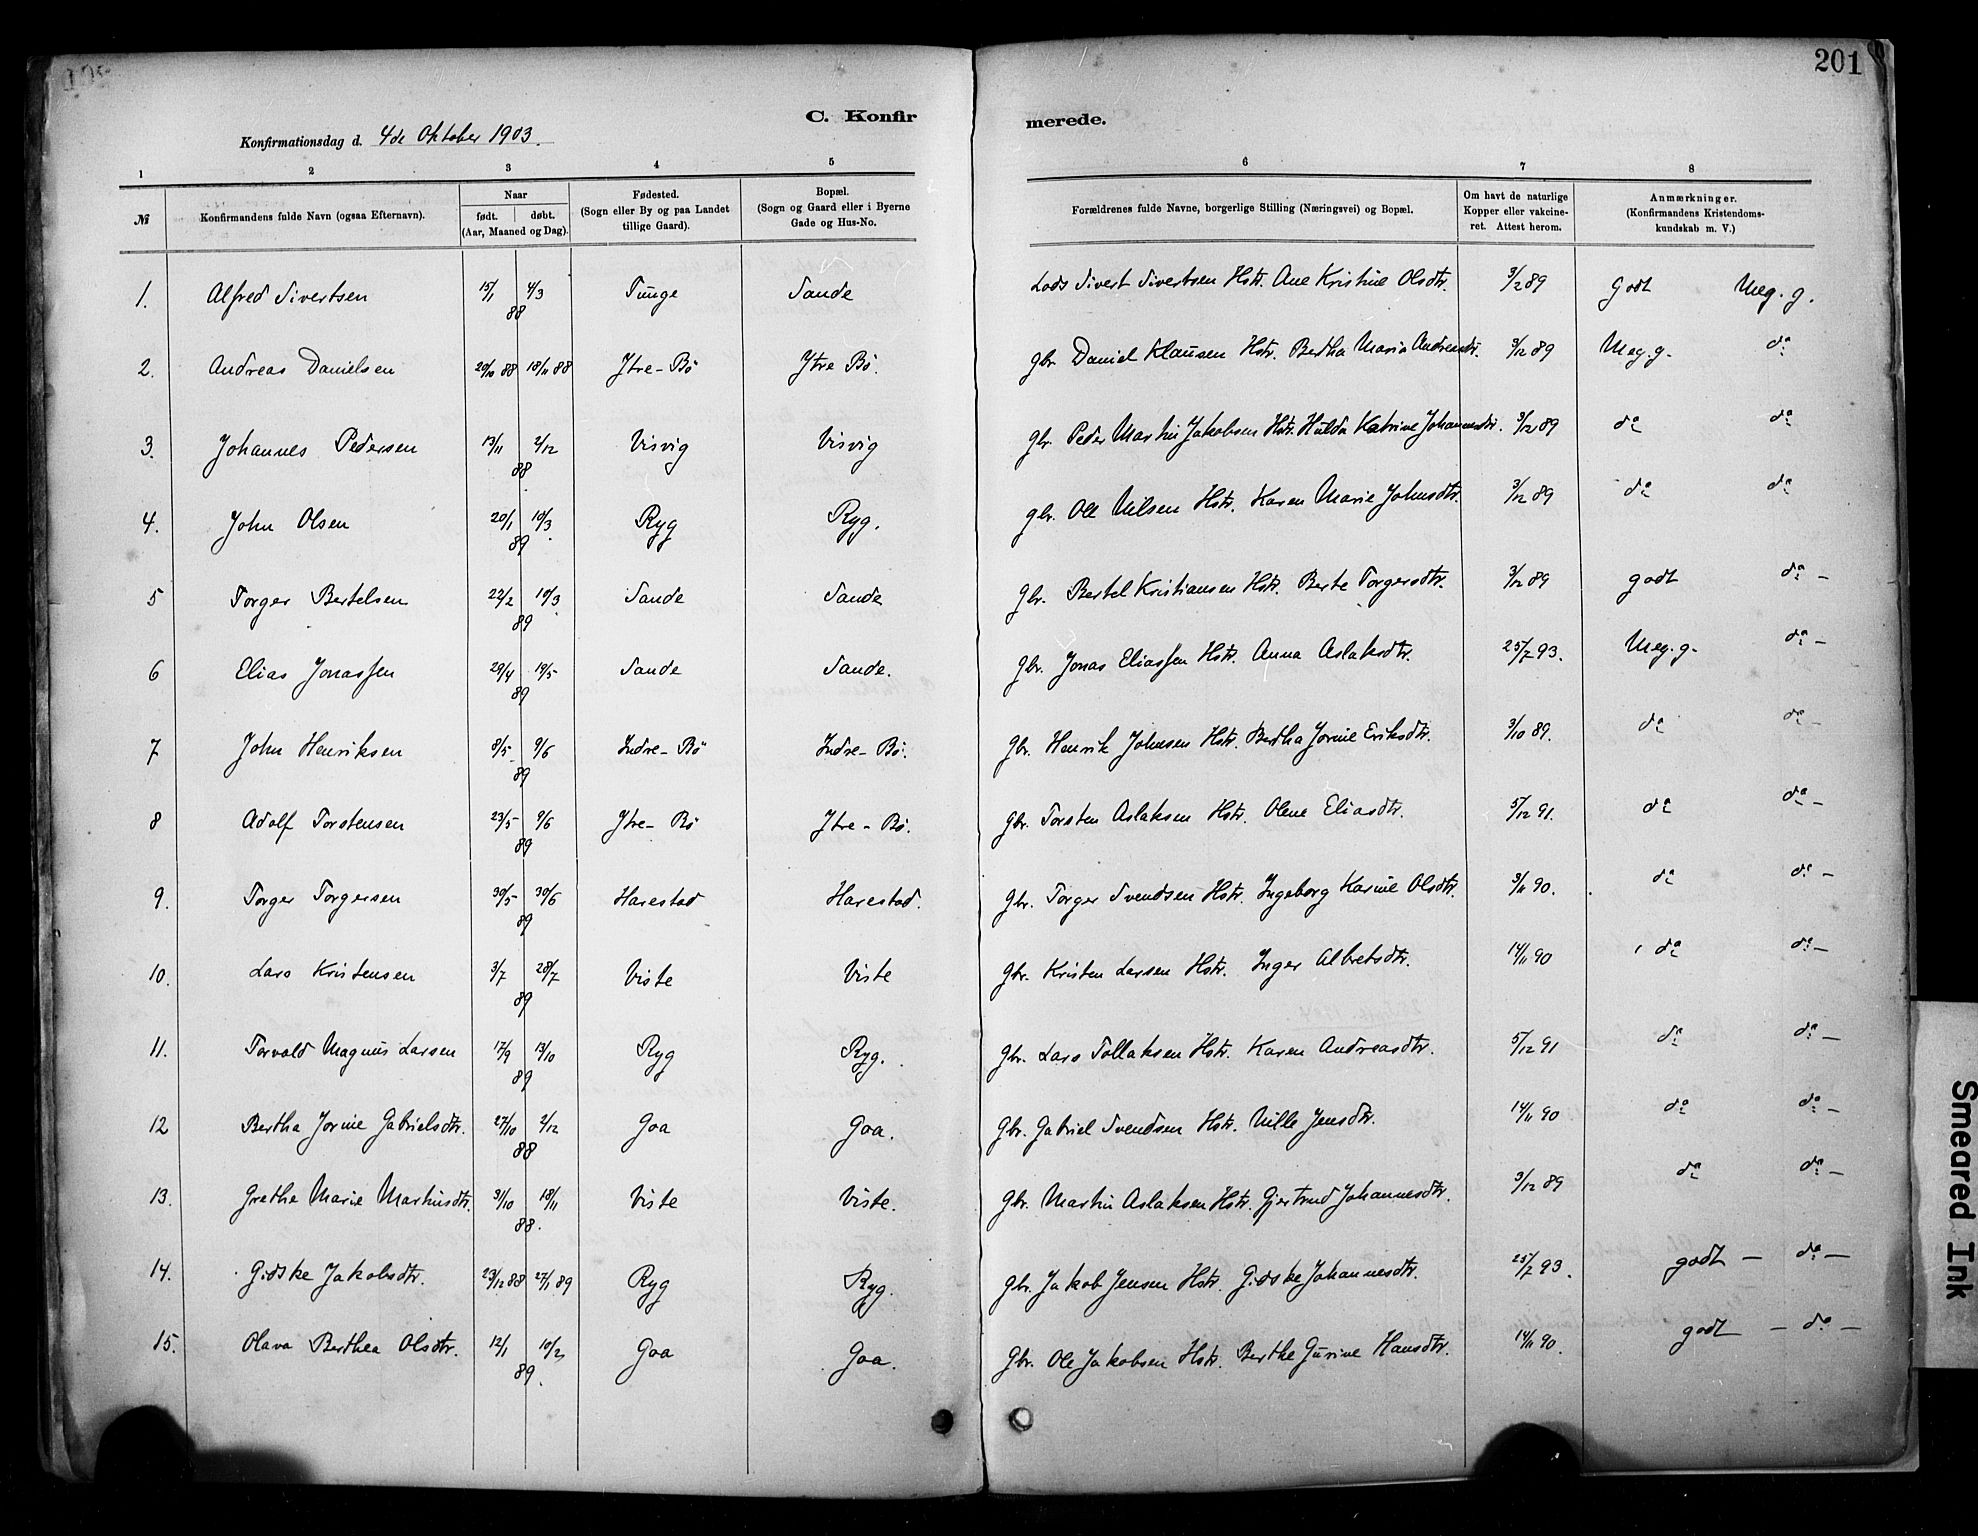 201
C. Konfirmerede.
Konfirmationsdag d. 4de Oktober 1903.
1 2 3 4 5 6 7 8
№ | Konfirmandens fulde Navn (ogsaa Efternavn). | Naar født. | døbt. (Aar, Maaned og Dag). | Fødested. (Sogn eller By og paa Landet tillige Gaard). | Bopæl. (Sogn og Gaard eller i Byerne Gade og Hus-No. | Forældrenes fulde Navne, borgerlige Stilling (Næringsvei) og Bopæl. | Om havt de naturlige Kopper eller vakcineret. Attest herom. | Anmærkninger. (Konfirmandens Kristendomskundskab m. V.)
1. Alfred Sivertsen 15/1 4/3 88 Tunge Sande Lods Sivert Sivertsen Hstr. Ane Kristine Olsdtr. 3/2 89 Godt Meg. g.
2. Andreas Danielsen 20/10 88 18/11 88 Ytre-Bö Ytre Bö. gbr. Daniel Klausen Hstr. Bertha Maria Andreasdtr. 3/12 89 Meg. g. do
3. Johannes Pedersen 13/11 2/12 88 Visvig Visvig gbr. Peder Martin Jakobsen Hstr. Hulda Katrine Johannesdtr. 3/12 89 do do
4. John Olsen 20/1 10/3. 89 Ryg Ryg. gbr. Ole Nilsen Hstr. Karen Marie Johnsdtr. 3/12 89 do do
5 Torger Bertelsen 22/2 10/3 89 Sande Sande gbr. Bertel Kristiansen Hstr. Berte Torgersdtr. 3/12 89 godt do –
6 Elias Jonassen 29/4 19/5 89 Sande Sande. gbr. Jonas Eliassen Hstr. Anna Aslaksdtr. 25/7 93. Meg. g. do –
7 John Henriksen 8/5 9/6 89 Indre-Bö Indre-Bö. gbr. Henrik Johnsen Hstr. Bertha Jorine Eriksdtr. 3/10 89. do do –
8 Adolf Torstensen 23/5 9/6 89 Ytre-Bö Ytre-Bö. gbr. Torsten Aslaksen Hstr. Olene Eliasdtr. 5/12 91. do do –
9. Torger Torgersen 30/5 30/6 89 Harestad Harestad. gbr. Torger Svendsen Hstr. Ingeborg Karine Olsdtr. 3/11 90. do do –
10. Lars Kristensen 3/7 28/7 89 Viste Viste gbr. Kristen Larsen Hstr. Inger Albretsdtr. 14/11 90 do do –
11. Torvald Magnus Larsen 17/9 13/10 89 Ryg Ryg. gbr. Lars Tollaksen Hstr. Karen Andreasdtr. 5/12 91 do do –
12 Bertha Jorine Gabrielsdtr. 27/10 2/12 88 Goa Goa. gbr. Gabriel Svendsen Hstr. Nille Jensdtr. 14/11 90 do do –
13. Grethe Marie Martinsdtr. 31/10 18/11 88. Viste Viste. gbr. Martin Aslaksen Hstr. Gjertrud Johannesdtr. 3/12 89 do do –
14. Gidske Jakobsdtr. 23/12 88 27/1 89 Ryg Ryg. gbr. Jakob Jensen Hstr. Gidske Johannesdtr. 25/7 93. godt – do –
15. Olava Berthea Olsdtr. 12/1 10/2 89. Goa Goa. gbr. Ole Jakobsen Hstr. Berthe Gurine Hansdtr. 14/11 90. godt – do –
Smeared Ink